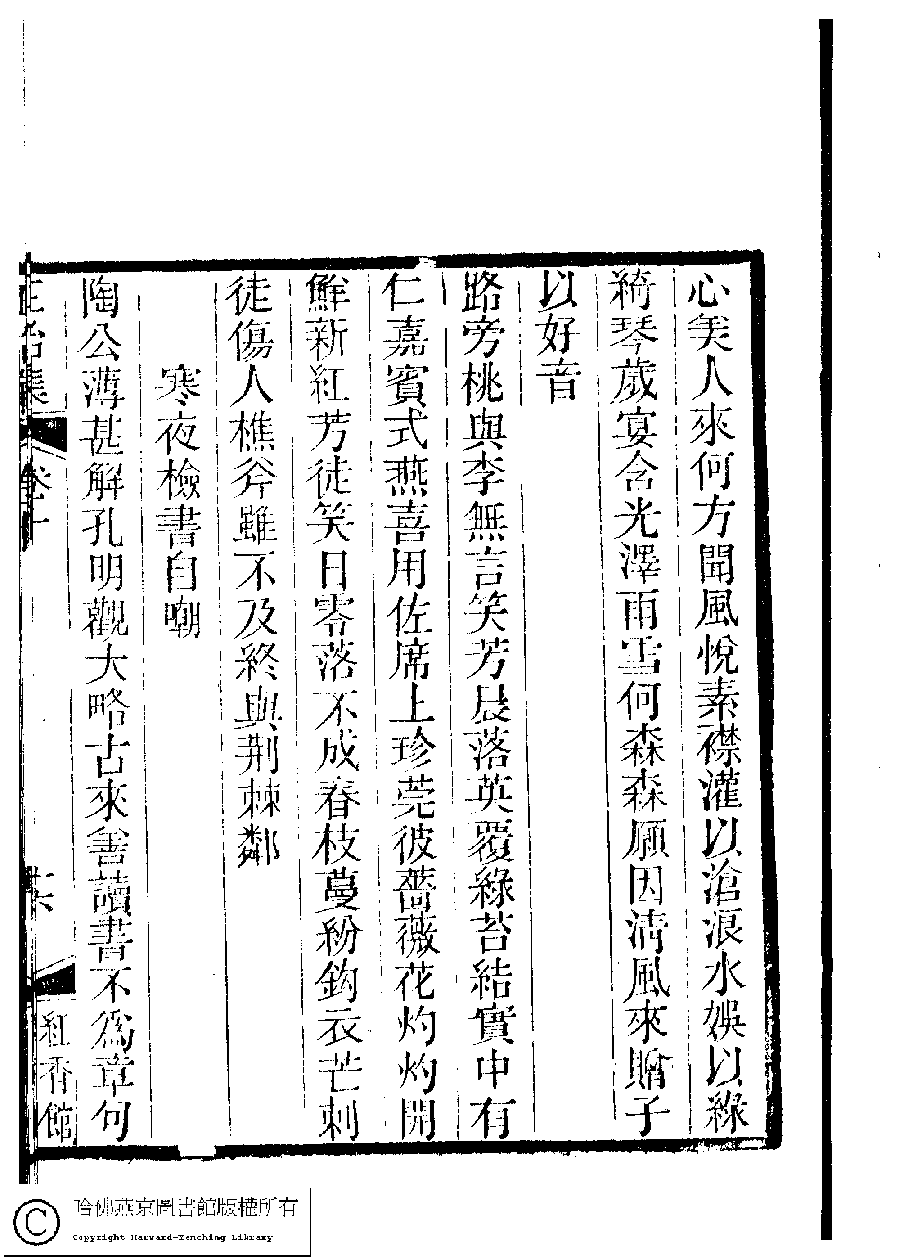 心美人來何方聞風悅素襟灌以滄浪水娛以綠
綺琴歲宴含光澤雨雪何森森願因清風來贈子
以好音
路旁桃與李無言笑芳晨落英覆綠苔結實中有
仁嘉賓式燕喜用佐席上珍莞彼薔薇花灼灼開
鮮新紅芳徒笑日零落不成春枝蔓紛鉤衣芒刺
徒傷人樵斧雖不及終與荆棘鄰
寒夜檢書自嘲
陶公薄甚解孔明觀大略古來善讀書不爲章句
集
卷十
紅香館
哈佛燕京圖書館版權所有
Copyright Harvard-Yenching Library